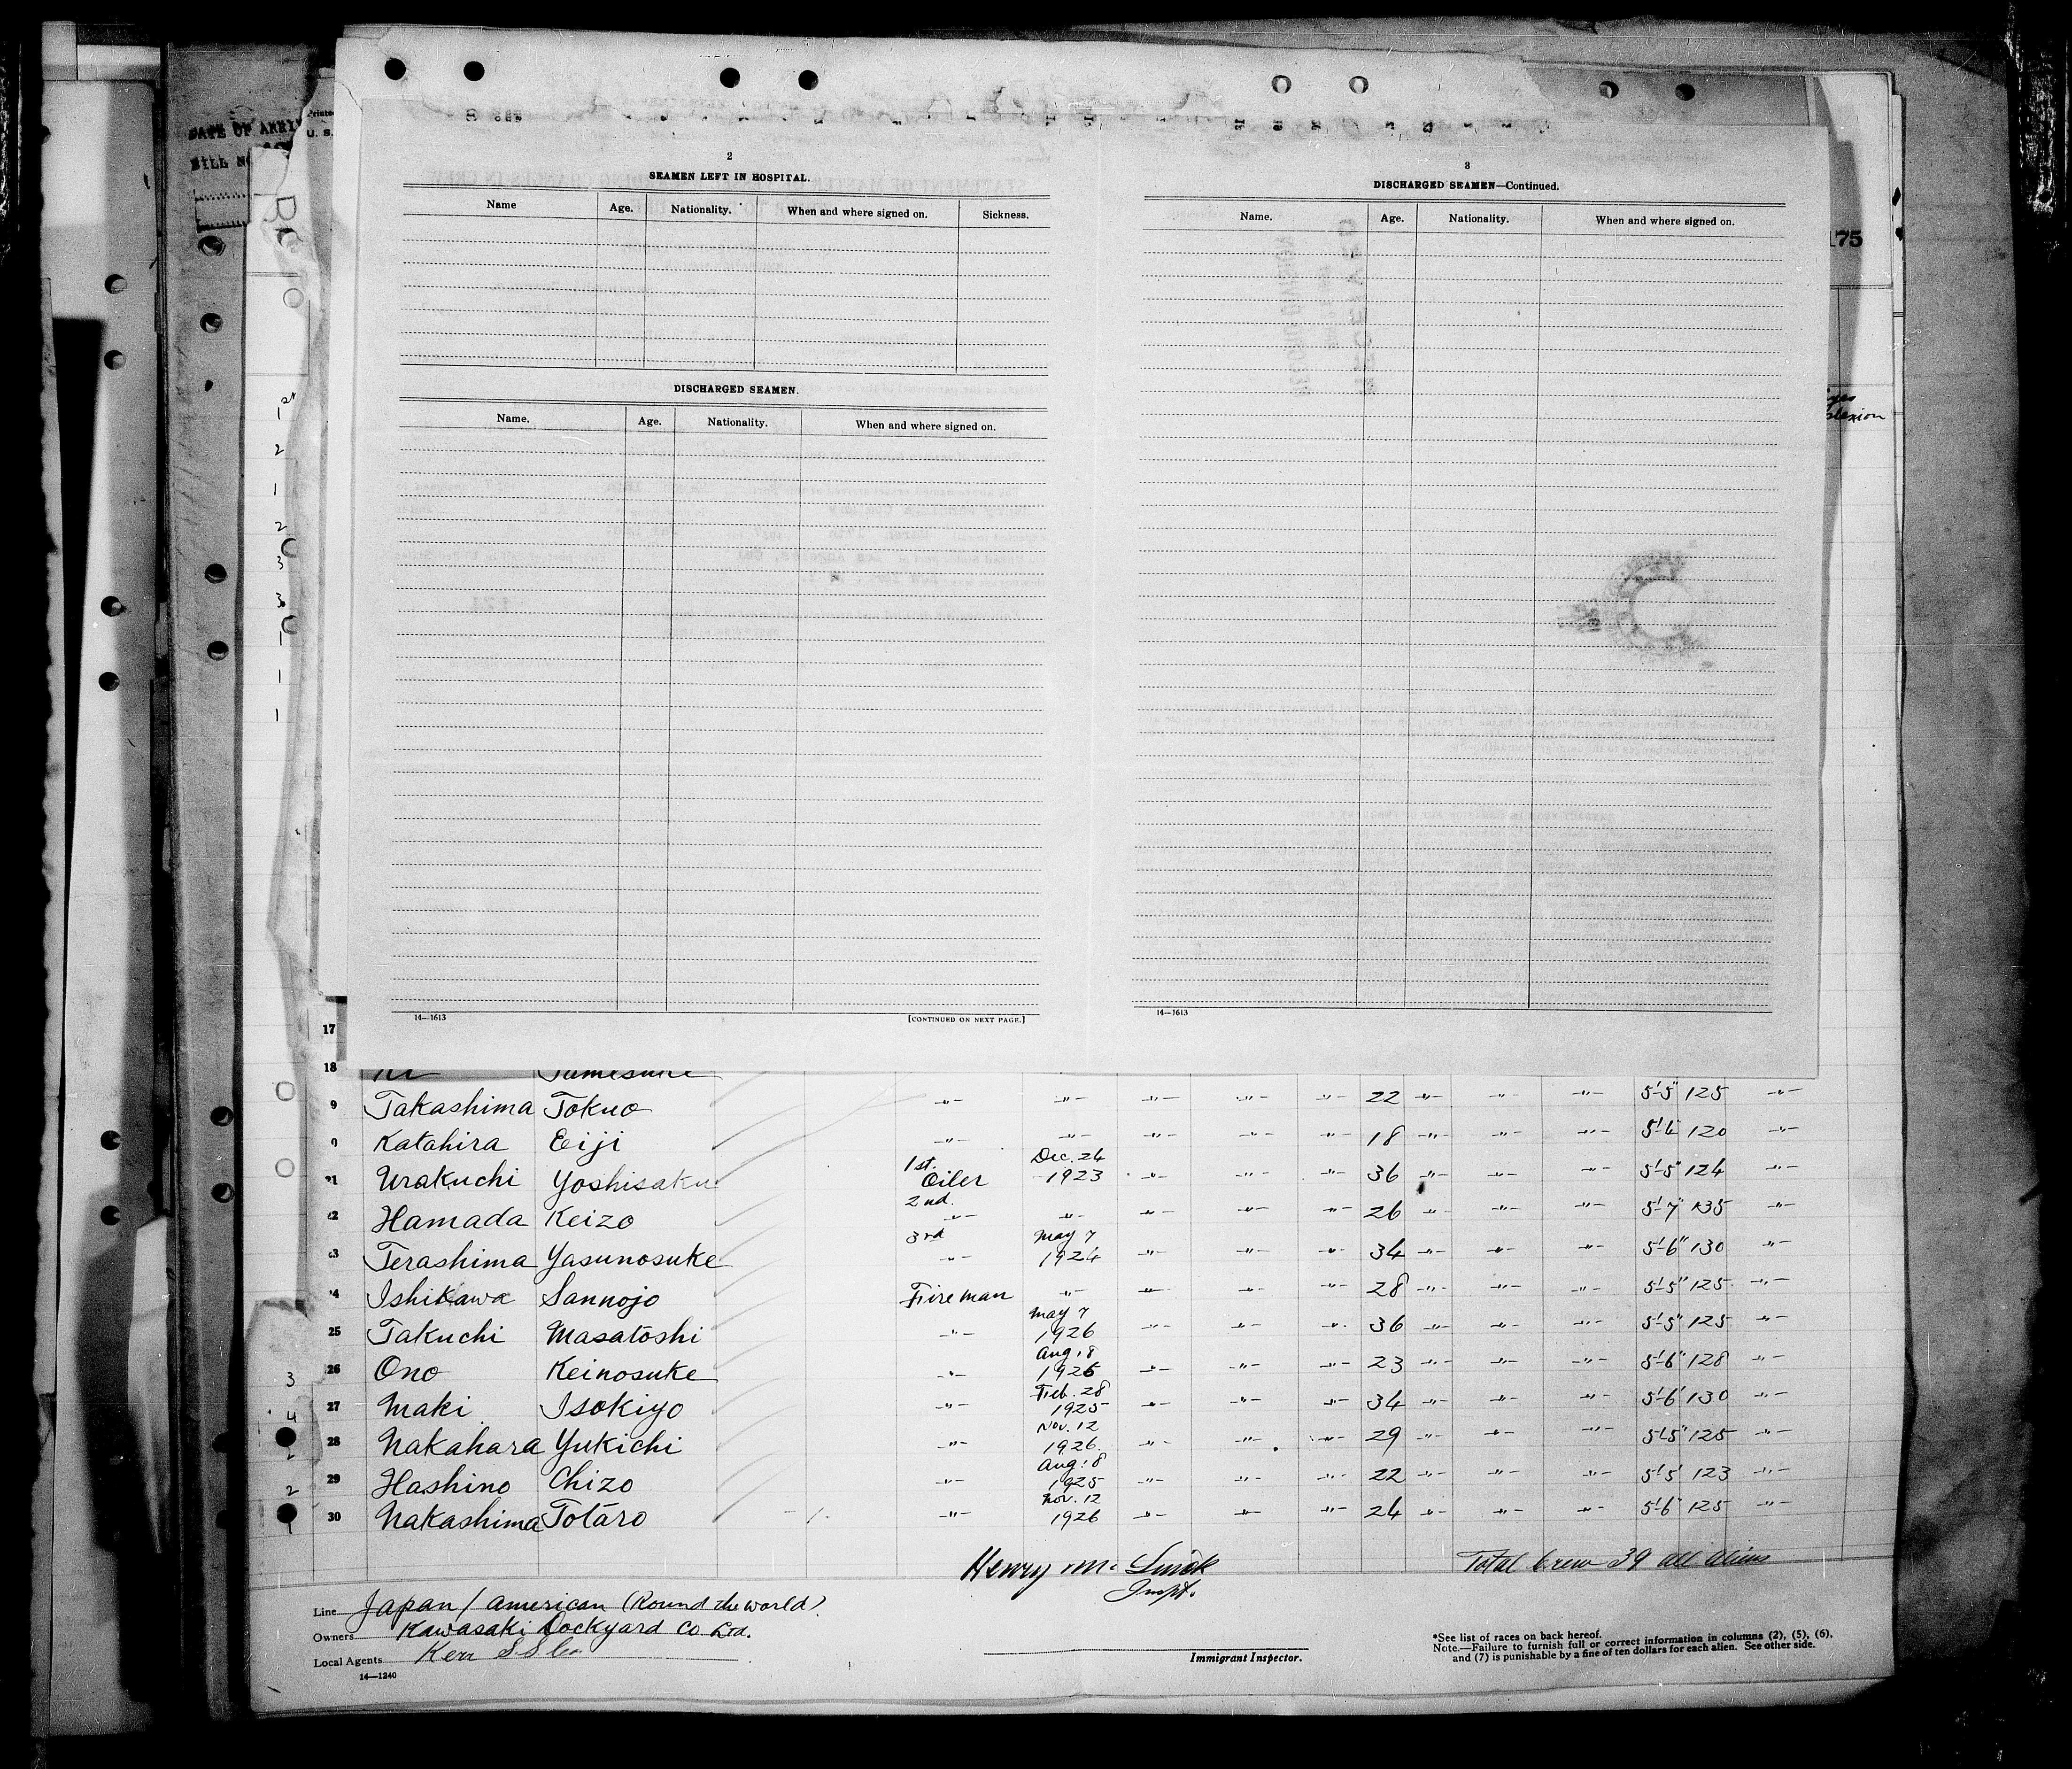 DATE OF
BILL
175
2
SEAMEN LEFT IN HOSPITAL.
Name Age. Nationality. When and where signed on. Sickness.
DISCHARGED SEAMEN.
Name. Age. Nationality. When and where signed on.
14—1613 [CONTINUED ON NEXT PAGE.]
3
DISCHARGED SEAMEN—Continued.
Name. Age. Nationality. When and where signed on.
14—1613
17
18
9 Takashima Tokuo -"- -"- -"- -"- -"- 22 -"- -"- -"- 5'-5" 125 -"-
Katahira Eiji -"- -"- -"- -"- -"- 18 -"- -"- -"- 5'-4 120 -"-
21 Urakuchi Yoshisaku 1st. Oiler Dec. 24 1923 -"- -"- -"- 36 -"- -"- -"- 5'-5" 124 -"-
22 Hamada Keizo 2nd. -"- -"- -"- -"- -"- 26 -"- -"- -"- 5'-7" 135 -"-
23 Terashima Yasunosuke 3rd -"- May 7 1924 -"- -"- -"- 34 -"- -"- -"- 5'-6" 130 -"-
24 Ishikawa Sannojo Fireman -"- -"- -"- -"- 28 -"- -"- -"- 5'-5" 125 -"-
25 Takuchi Masatoshi -"- May 7 1926 -"- -"- -"- 36 -"- -"- -"- 5'-5" 125 -"-
26 Ono Keinosuke -"- Aug. 8 -"- -"- -"- 23 -"- -"- -"- 5'-6" 128 -"-
27 Maki Isokiyo -"- Feb. 28 1925 -"- -"- -"- 34 -"- -"- -"- 5'-6 130 -"-
28 Nakahara Yukichi -"- Nov. 12 1926. -"- -"- -"- 29 -"- -"- -"- 5'-5" 125 -"-
29 Hashino Chizo -"- Aug. 8 1925 -"- -"- -"- 22 -"- -"- -"- 5'-5' 123 -"-
30 Nakashima Totaro -"- Nov. 12 1926 -"- -"- -"- 24 -"- -"- -"- 5'-6 125 -"-
Total Crew 39 all aliens
Henry Mc
Inspt.
Line Japan/American (Round the world).
Owners Kawasaki Dockyard Co. Ltd.
Local Agents Kerr S S Co
14—1240
Immigrant Inspector.
*See list of races on back hereof.
Note.—Failure to furnish full or correct information in columns (2), (5), (6),
and (7) is punishable by a fine of ten dollars for each alien. See other side.